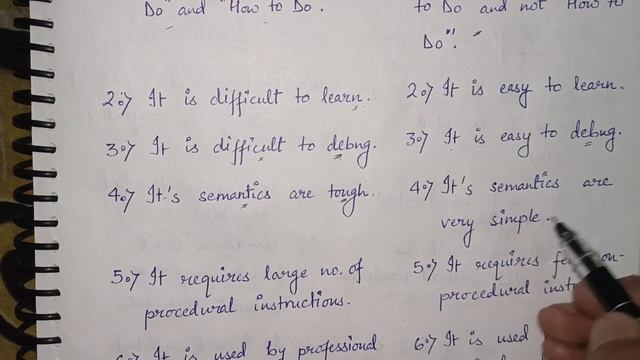 Do" and "How to Do".
to Do and not How to
Do".
2.) It is difficult to learn.
2.) It is easy to learn.
3.) It is difficult to debug.
3.) It is easy to debug.
4.) It's semantics are tough.
4.) It's semantics are
very simple.
5.) It requires large no. of
procedural instructions.
5.) It requires on-
procedural
It is used by professional
6.) It is used